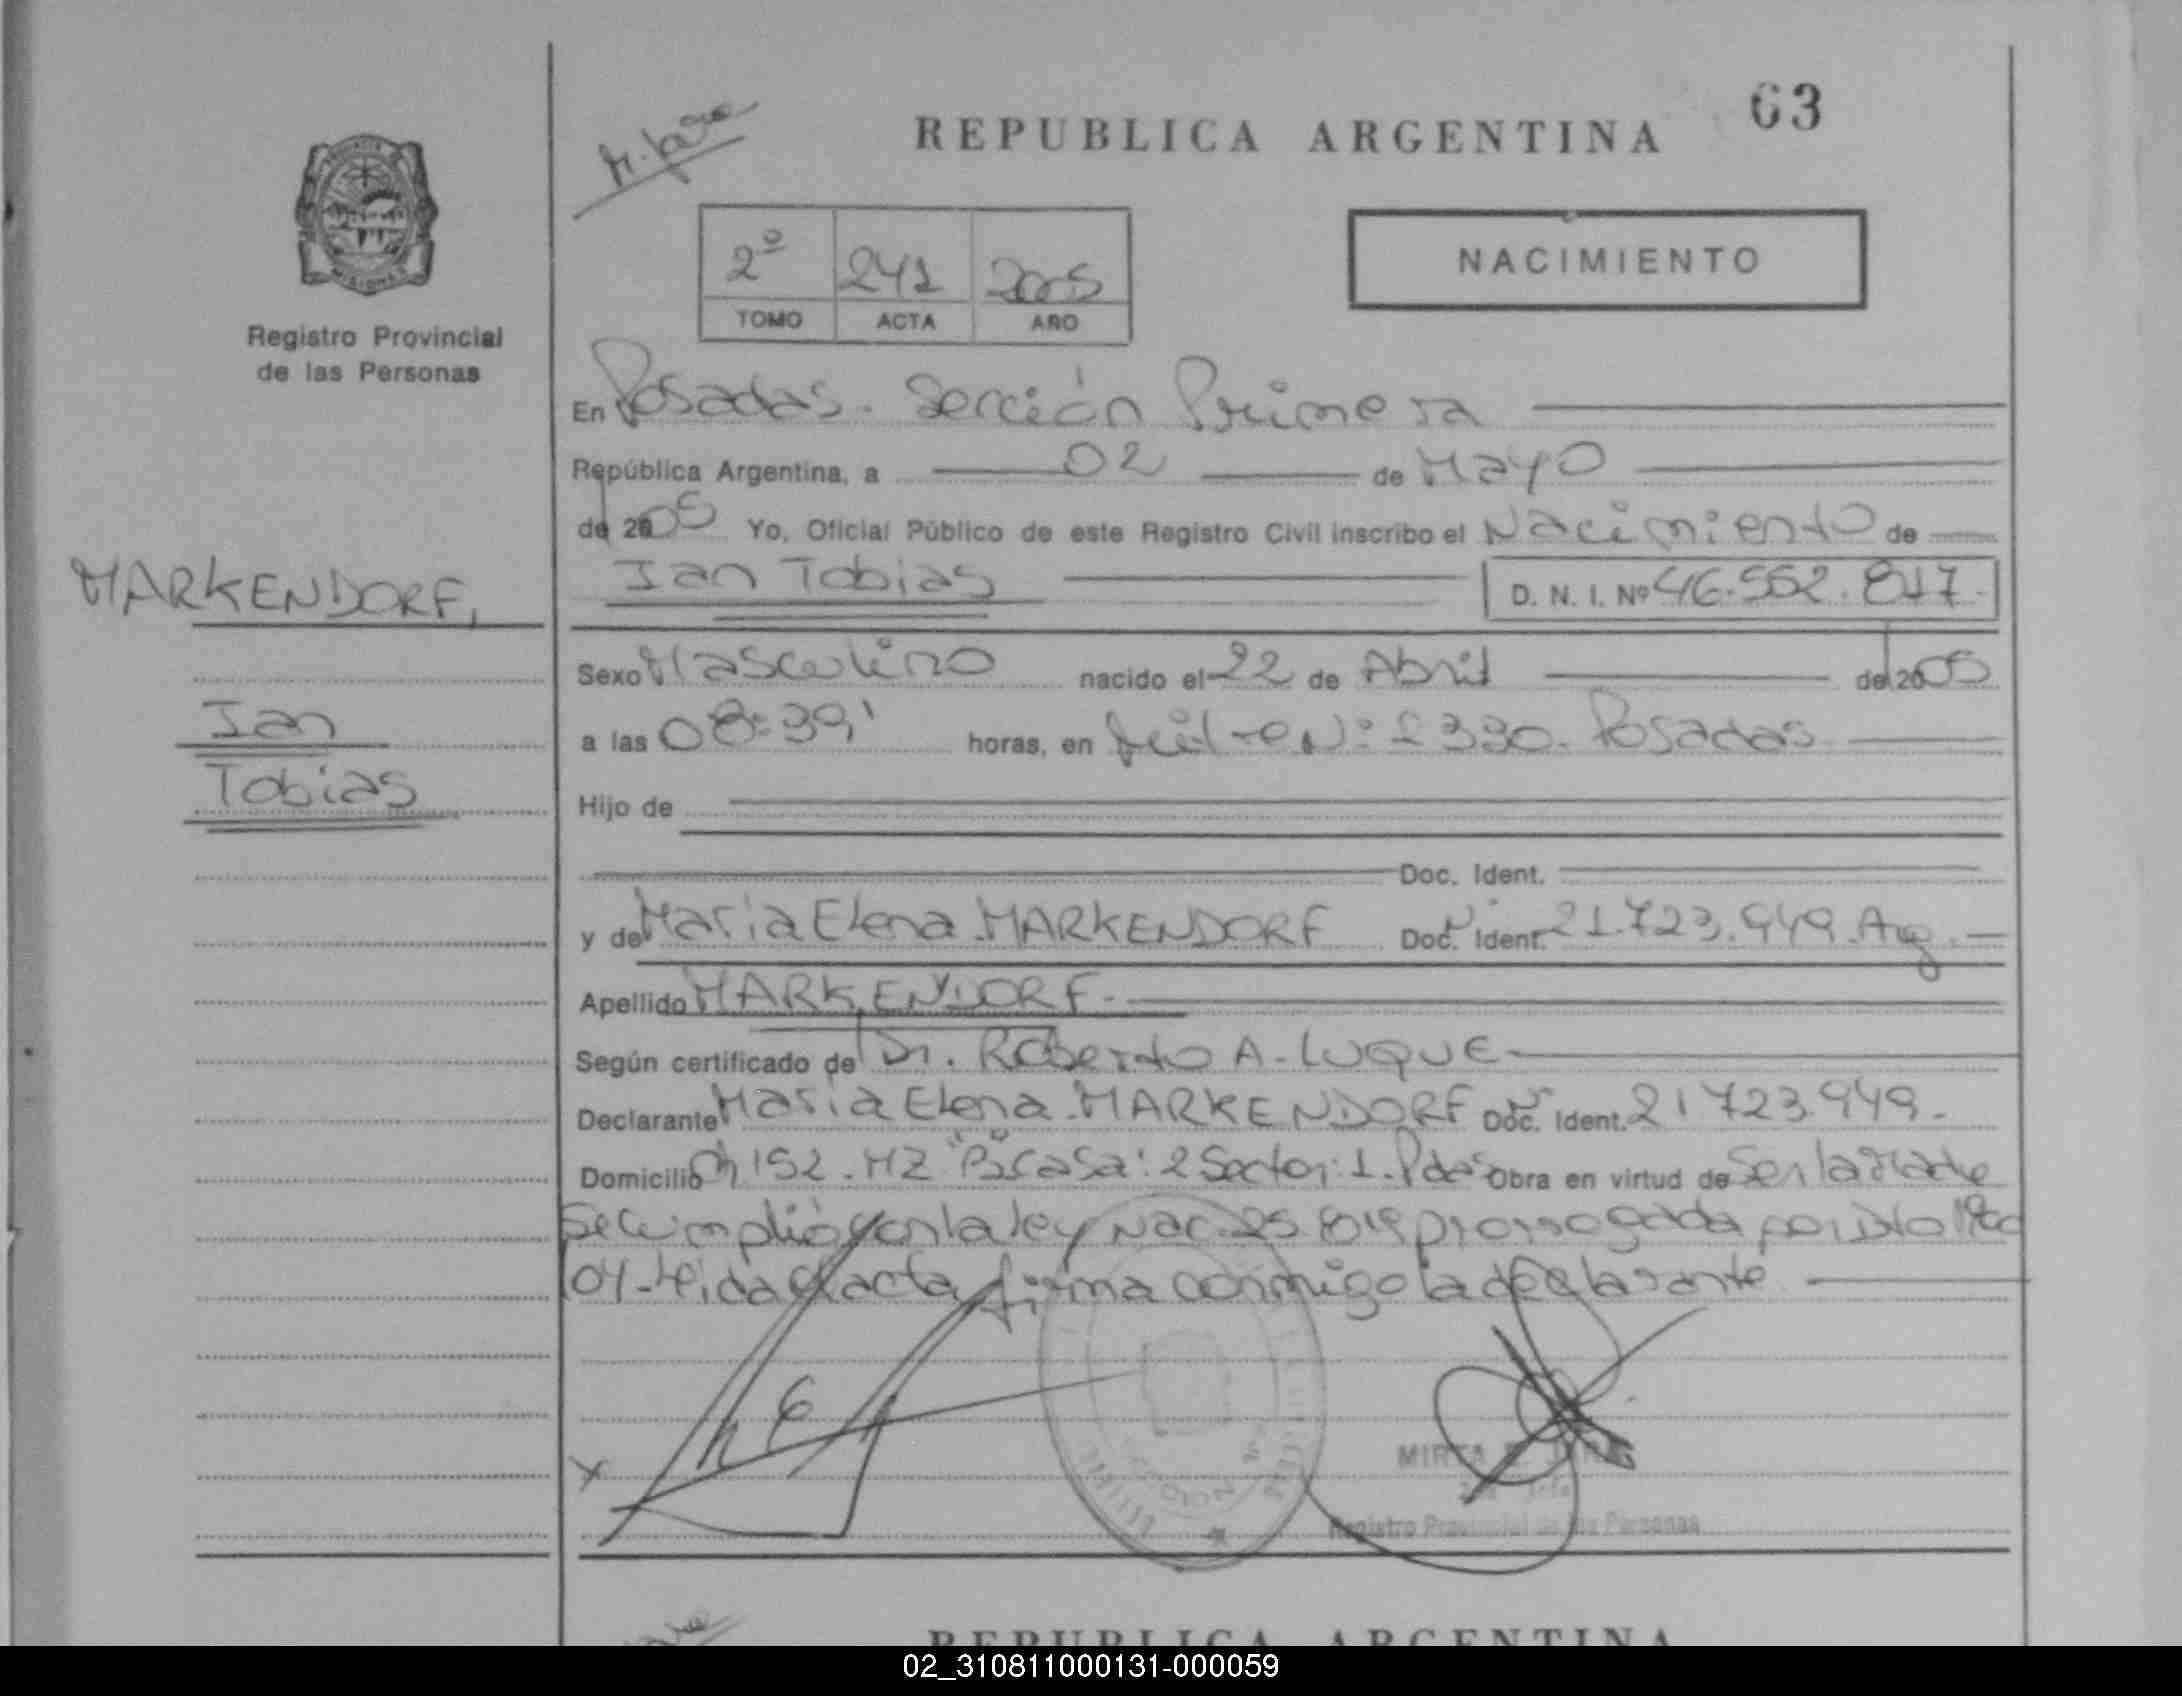 63
REPUBLICA ARGENTINA
2º 241 2005
TOMO ACTA AÑO
NACIMIENTO
Registro Provincial
de las Personas
En Posadas. Sección Primera
República Argentina, a 02 de Mayo
de 2005 Yo, Oficial Público de este Registro Civil inscribo el Nacimiento de
Ian Tobias D. N. I. Nº 46.552.817.
MARKENDORF,
Ian
Tobias
Sexo Masculino nacido el 22 de Abril de 2005
a las 08:39' horas, en Nº: 2330. Posadas
Hijo de
Doc. Ident.
y de Maria Elena MARKENDORF Doc. Ident. 21.723.949. Arg.
Apellido MARKENDORF.
Según certificado de Dr. Roberto A. LUQUE
Declarante Maria Elena MARKENDORF Doc. Ident. 21723.949.
Domicilio Ch 152. MZ "B" Casa: 2 Sector: 1. Pdas Obra en virtud de Ser la Madre
Se cumplió con la ley Nac. 25.819 prorrogada por Dto
04. Leida el acta, firma conmigo la declarante
MIRTA
Registro Provincial de las Personas
REPUBLICA ARGENTINA
02_310811000131-000059